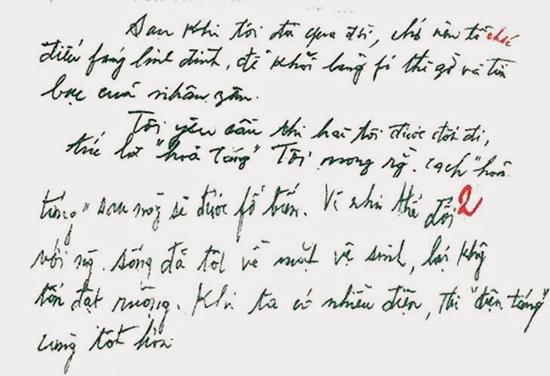 Sau khi tôi đã qua đời, chớ nên tổ chức
điếu fúng linh đình, để khỏi lãng fí thì giờ và tiền
bạc của nhân zân.
Tôi yêu cầu thi hài tôi được đốt đi,
tức là "hoả táng". Tôi mong rg̀. cách "hoả
táng" sau này sẽ được fổ biến. Vì như thế đối 2
với ng̀. sống đã tốt về mặt vệ sinh, lại khg
tốn đất ruộng. Khi ta có nhiều điện, thì "điện táng"
càng tốt hơn